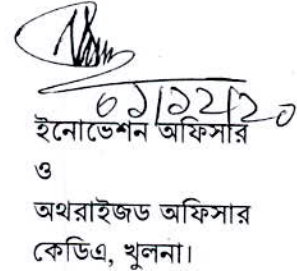 ইনোভেশন অফিসার
ও
অথরাইজড অফিসার
কেডিএ, খুলনা।